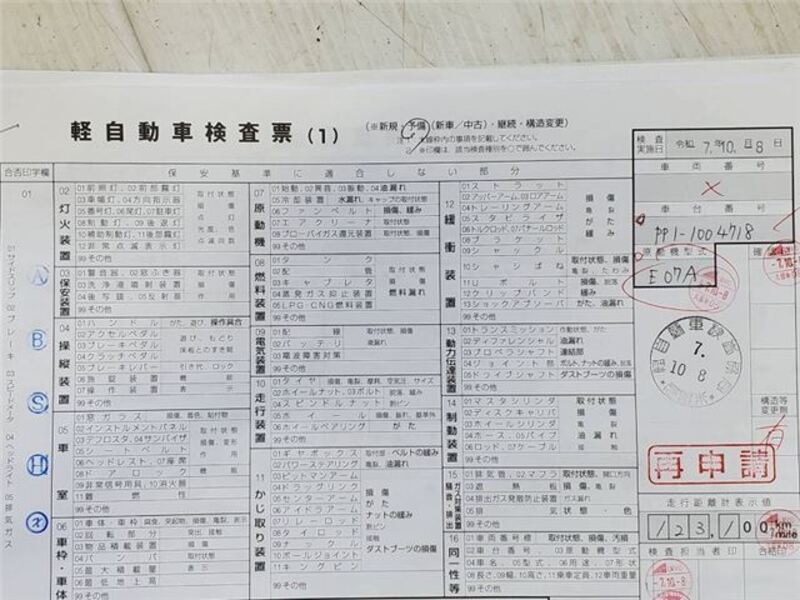 軽自動車検査票(1)
(※新規・予備(新車/中古)・継続・構造変更)
※印欄は、該当検査種別を○で囲んでください。
検査実施日 令和 7年10月8日
合否印字欄
保安基準に適合しない部分
車両番号
×
車台番号
PP1-1004718
原動機型式
E07A
01
01 サイドスリップ 02 ブレーキ 03 スピードメータ 04 ヘッドライト 05 排気ガス
A
B
S
H
X
02 灯火装置
01前照灯、02前部霧灯
03車幅灯、04方向指示器
05番号灯、06尾灯、07駐車灯
08制動灯、09後退灯
10補助制動灯、11後部霧灯
12非常点滅表示灯
99その他
取付状態
損傷
点灯
光度、色
点滅回数
03 保安装置
01警音器、02窓ふき器
03洗浄液噴射装置
04後写鏡、05反射器
99その他
取付状態
損傷
作用
04 操縦装置
01ハンドル
がた、遊び、操作具合
02アクセルペダル
03ブレーキペダル
04クラッチペダル
遊び、もどり
床板とのすき間
05ブレーキレバー
引き代、ロック
06施錠装置
機能
07操作装置
表示
99その他
05 車室
01窓ガラス
損傷、着色、貼付物
02インストルメントパネル
03デフロスタ、04サンバイザ
05シートベルト
06ヘッドレスト、07座席
08ドアロック
取付状態
損傷、変形
作用
機能
09非常信号用具、10消火器
11難燃性
99その他
06 車枠・車体
01車体・車枠
02回転部分
突出、接触
03物品積載装置
損傷
04バンパ
取付状態
05最大積載量
表示
06最低地上高
99その他
07 原動機
01始動、02異音、03振動、04油漏れ
05冷却装置
水漏れ、キャップの取付状態
06ファンベルト
損傷、緩み
07エアクリーナ
取付状態
08ブローバイガス還元装置
取付状態、損傷
99その他
08 燃料装置
01タンク
02配管
03キャブレタ
04蒸発ガス抑止装置
05LPG・CNG燃料装置
取付状態
損傷
燃料漏れ
99その他
09 電気装置
01配線
取付状態、損傷
02バッテリ
液漏れ
03電波障害対策
99その他
10 走行装置
01タイヤ
損傷、亀裂、摩耗、空気圧、サイズ
02ホイールナット、03ボルト
脱落、緩み
04スピンドルナット
割ピン
05ホイール
損傷、振れ、基準外
06ホイールベアリング
がた
99その他
11 かじ取り装置
01ギヤボックス
取付部・ベルトの緩み
02パワーステアリング
亀裂、油漏れ
03ピットマンアーム
04ドラッグリンク
05センターアーム
06アイドラアーム
07リレーロッド
08タイロッド
09ナックル
10ボールジョイント
11キングピン
損傷
がた
ナットの緩み
割ピン
接触
ダストブーツの損傷
99その他
12 緩衝装置
01ストラット
02アッパーアーム、03ロアアーム
04トレーリングアーム
05スタビライザ
06トルクロッド、07パナールロッド
08ブラケット
09シャックル
損傷
亀裂
がた
緩み
10シャシばね
取付状態、損傷
亀裂、たわみ
11Uボルト
損傷、脱落
12クリップバンド
緩み
13ショックアブソーバ
がた、油漏れ
99その他
13 動力伝達装置
01トランスミッション
作動状態、がた
02ディファレンシャル
油漏れ、損傷
03プロペラシャフト
連結部
04ジョイント部
ボルト、ナットの緩み、脱落
05ドライブシャフト
ダストブーツの損傷
99その他
14 制動装置
01マスタシリンダ
02ディスクキャリパ
03ホイールシリンダ
04ホース、05パイプ
06ロッド、07ケーブル
取付状態
損傷
亀裂
油漏れ
接触
99その他
15 騒音・排出ガス対策装置
01排気管、02マフラ
取付状態、開口方向
03遮熱板
損傷
04排出ガス発散防止装置
ガス漏れ
05排気
状態・色
99その他
16 同一性等
01車両番号標
取付状態、損傷、汚損
02車台番号、03原動機型式
04車名、05型式、06用途、07形状
08長さ、09幅、10高さ、11乗車定員、12車両重量
99その他
7.
10 8
構造等変更欄
有
再申請
走行距離計表示値
123,100 km
mile
検査担当者印
合格印
7.10-8